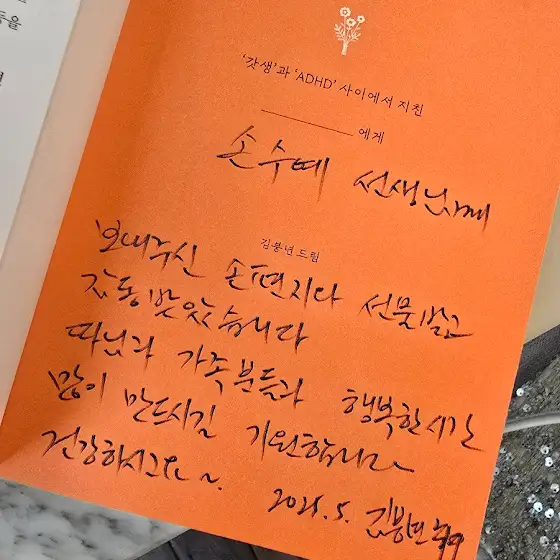 들을
'갓생'과 'ADHD' 사이에서 지친
에게
손수예 선생님께
김붕년 드림
보내주신 손편지와 선물 받고
감동받았습니다
따님과 가족분들과 행복한 시간
많이 만드시길 기원합니다
건강하시고요~.
2025. 5. 김붕년